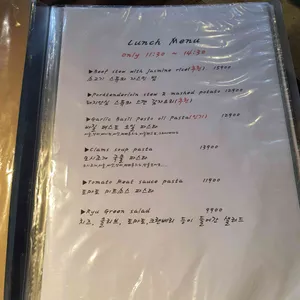 Lunch Menu
only 11:30 ~ 14:30
▶Beef stew with jasmine rice(추천) 13900
소고기 스튜와 자스민 밥
▶Porktenderloin stew & mashed potato 12900
돼지안심 스튜와 으깬 감자요리(추천)
▶Garlic Basil pesto oil pasta(인기) 12900
바질 페스토 오일 파스타
▶Clams soup pasta 13900
모시조개 국물 파스타
▶Tomato Meat sauce pasta 11900
토마토 미트소스 파스타
▶Ryu Green salad 9900
치즈, 올리브, 토마토, 크랜베리 등이 들어간 샐러드